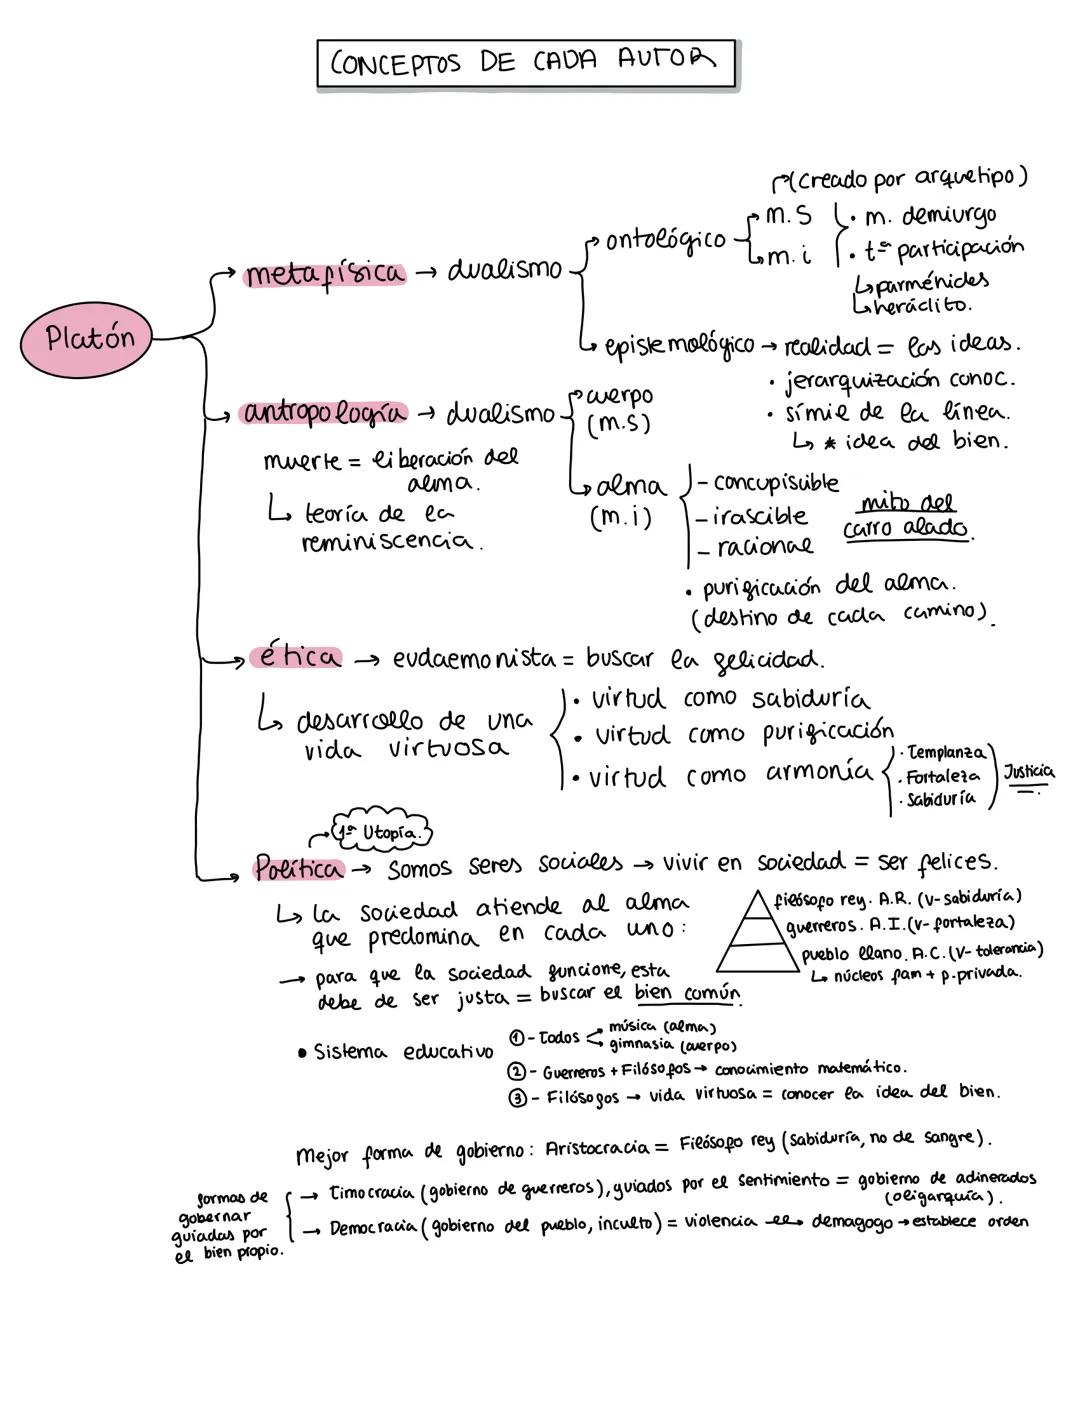 CONCEPTOS DE CADA AUTOR
Platón
metafísica → dualismo
ontológico
m.s
m.i
(creado por arquetipo)
• m. demiurgo
• tª participación
↳ parménides
↳ heráclito.
epistemológico → realidad = las ideas.
• jerarquización conoc.
• símil de la línea.
↳ * idea del bien.
antropología → dualismo
cuerpo
(m.s)
alma
(m.i)
- concupisuble
- irascible
- racional
mito del
carro alado.
• purificación del alma.
(destino de cada camino).
muerte = liberación del
alma.
↳ teoría de la
reminiscencia.
ética → eudaemonista = buscar la felicidad.
↳ desarrollo de una
vida virtuosa
• virtud como sabiduría
• virtud como purificación
• virtud como armonía
• Templanza
• Fortaleza
• Sabiduría
Justicia
1ª Utopía.
Política → somos seres sociales → vivir en sociedad = ser felices.
↳ la sociedad atiende al alma
que predomina en cada uno:
filósofo rey. A.R. (v-sabiduría)
guerreros. A.I. (v-fortaleza)
pueblo llano. A.C. (v-tolerancia)
↳ núcleos fam + p.privada.
→ para que la sociedad funcione, esta
debe de ser justa = buscar el bien común.
• Sistema educativo
① - Todos
música (alma)
gimnasia (cuerpo)
② - Guerreros + Filósofos → conocimiento matemático.
③ - Filósofos → vida virtuosa = conocer la idea del bien.
Mejor forma de gobierno: Aristocracia = Filósofo rey (sabiduría, no de sangre).
formas de
gobernar
guiadas por
el bien propio.
→ Timocracia (gobierno de guerreros), guiados por el sentimiento = gobierno de adinerados
(oligarquía).
→ Democracia (gobierno del pueblo, inculto) = violencia → demagogo → establece orden